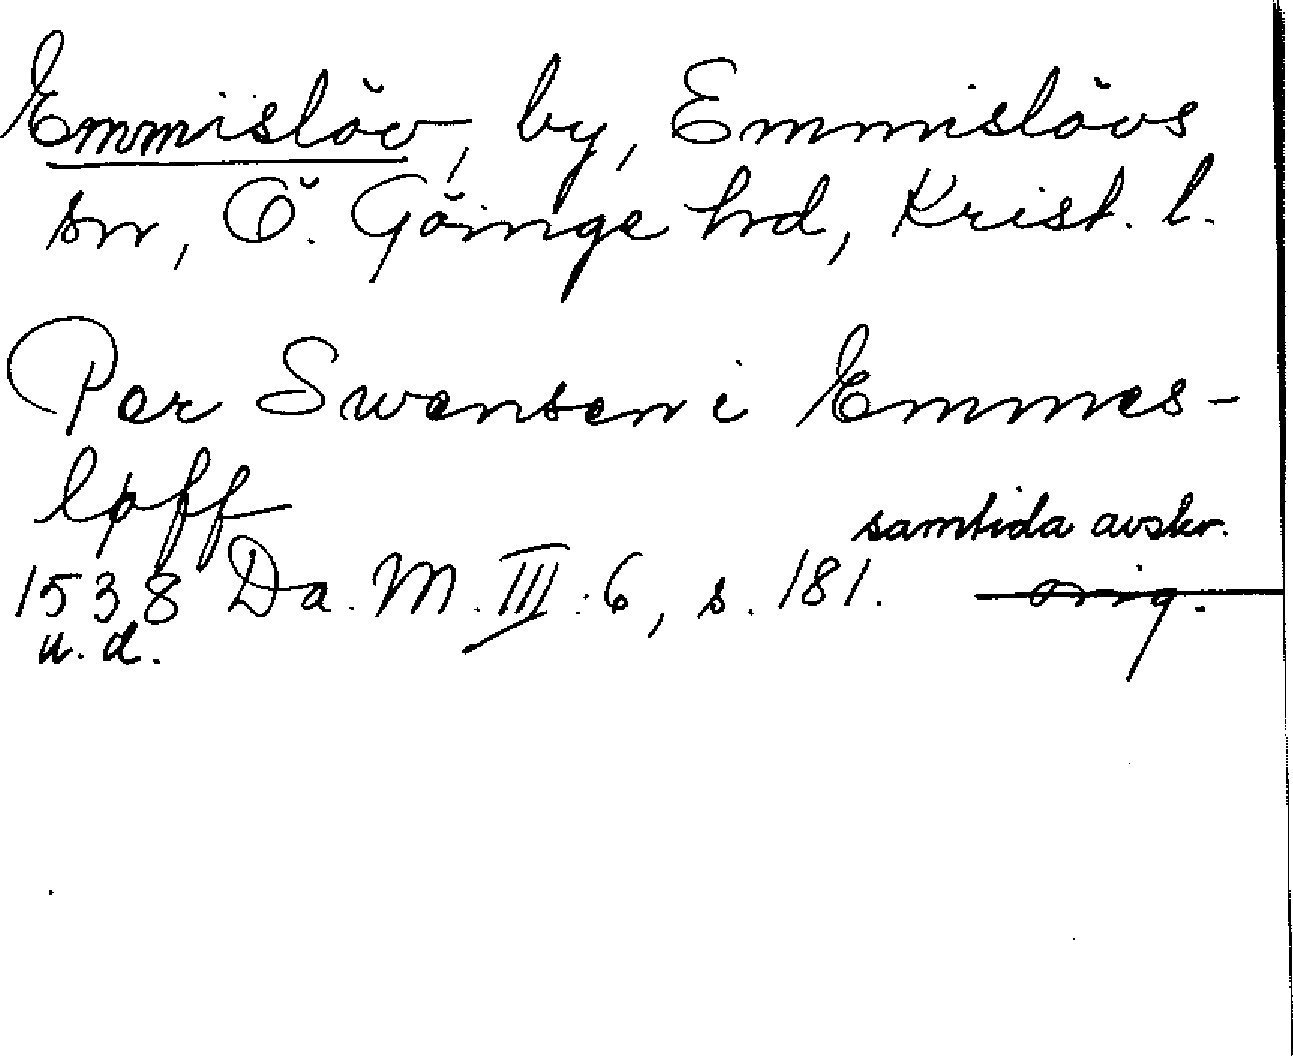 Emmislöv, by, Emmislövs
sn, Ö. Göinge hd, Krist. l.
Per Swensen i Emmes-
løff
samtida avskr.
1538 Da. M. III:6, s. 181. orig.
u. d.